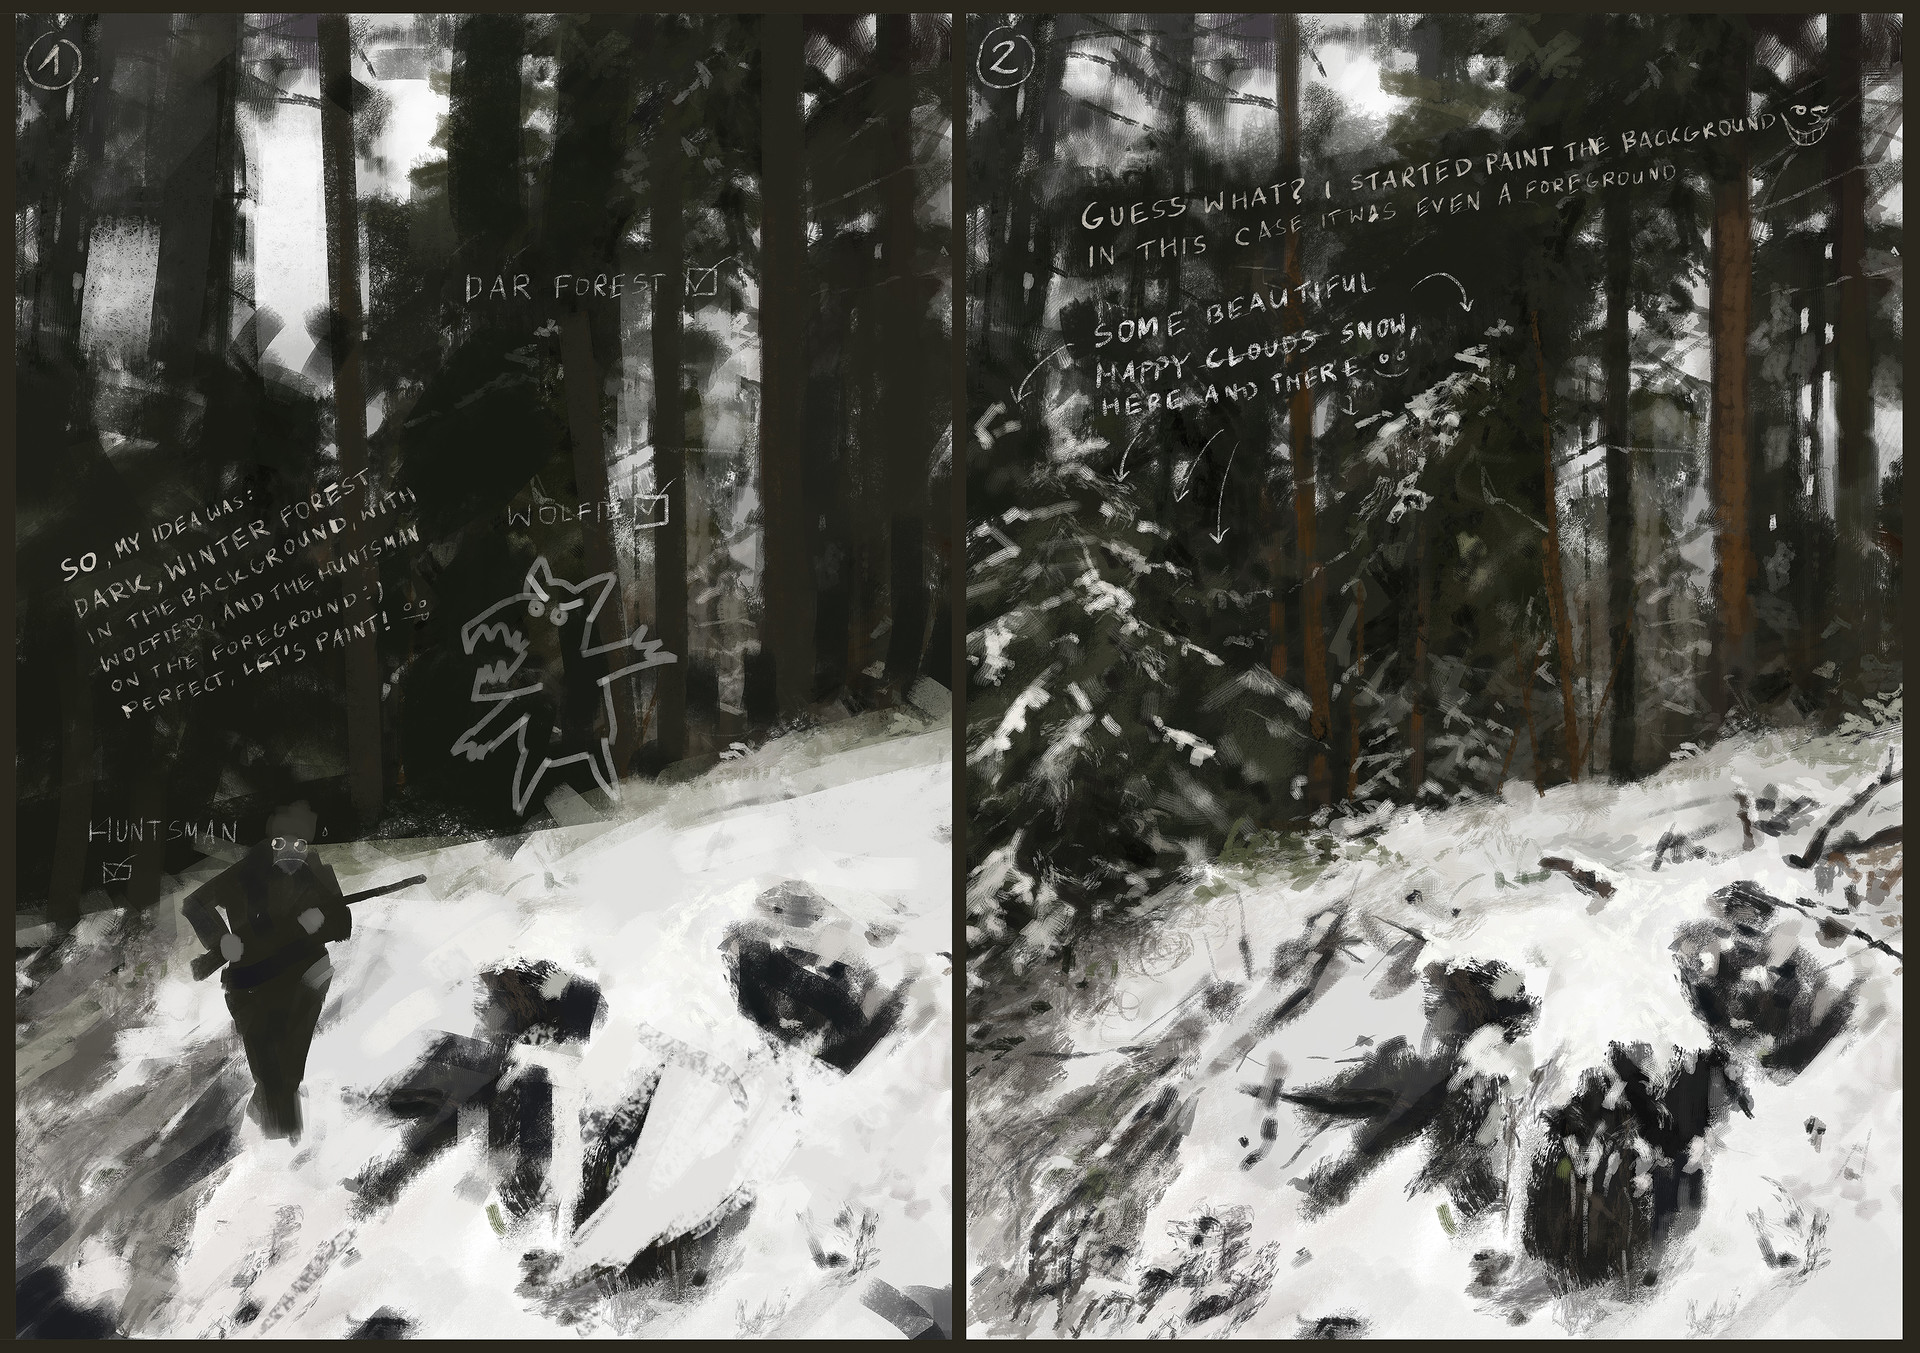 1.
DAR FOREST
WOLFIE
SO, MY IDEA WAS:
DARK, WINTER FOREST
IN THE BACKGROUND, WITH
WOLFIE♡, AND THE HUNTSMAN
ON THE FOREGROUND :)
PERFECT, LET'S PAINT!
HUNTSMAN
2
GUESS WHAT? I STARTED PAINT THE BACKGROUND
IN THIS CASE IT WAS EVEN A FOREGROUND
SOME BEAUTIFUL
HAPPY CLOUDS SNOW,
HERE AND THERE